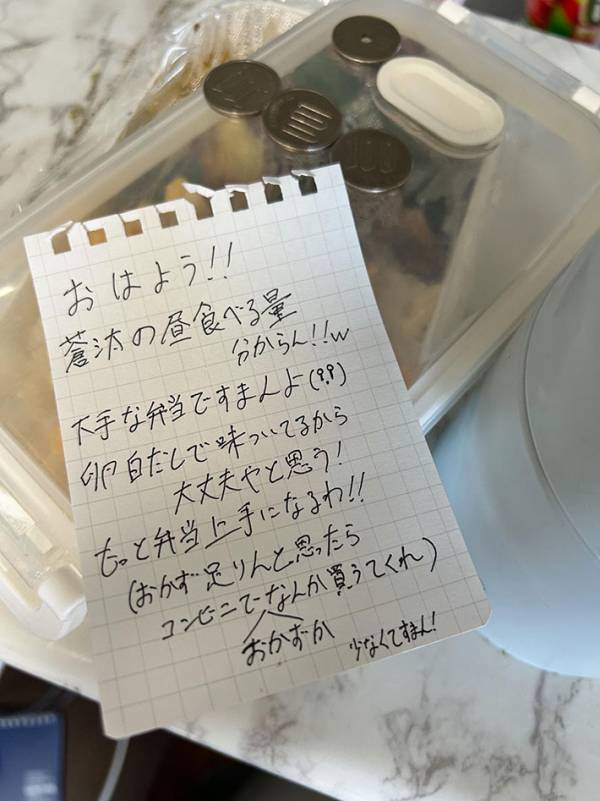 おはよう!!
蒼汰の昼食べる量
分からん!!w
下手な弁当ですまんよ(?.?)
卵白だしで味ついてるから
大丈夫やと思う!
もっと弁当上手になるわ!!
(おかず足りんと思ったら
コンビニでなんか買うてくれ)
おかずか
少なくてすまん!
100
100